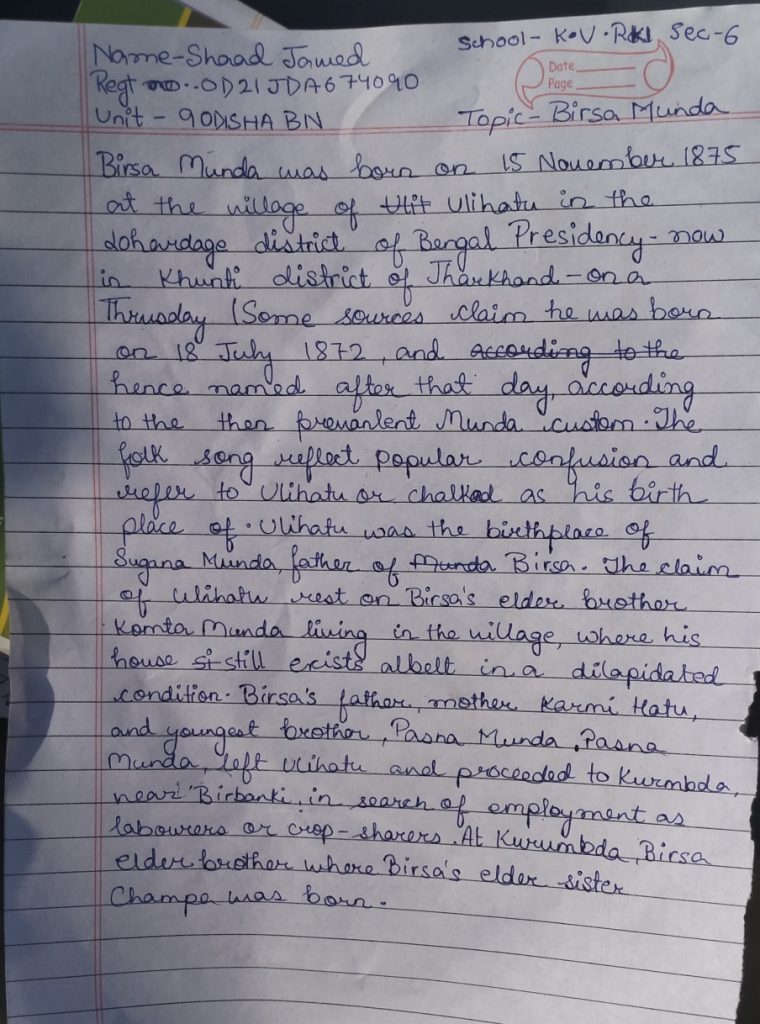 Name-Shaad Jawed
School- K.V. RKL Sec-6
Regt no.. OD21JDA674090
Date
Page
Unit - 9 ODISHA BN
Topic- Birsa Munda
Birsa Munda was born on 15 November 1875
at the village of Ulit Ulihatu in the
Lohardage district of Bengal Presidency- now
in Khunti district of Jharkhand - on a
Thrusday (Some sources claim he was born
on 18 July 1872, and according to the
hence named after that day, according
to the then prevanlent Munda custom. The
folk song reflect popular confusion and
refer to Ulihatu or chalkad as his birth
place of. Ulihatu was the birthplace of
Sugana Munda, father of Munda Birsa. The claim
of Ulihatu rest on Birsa's elder brother
Komta Munda living in the village, where his
house si still exists albelt in a dilapidated
condition. Birsa's father, mother Karmi Hatu,
and youngest brother, Pasna Munda, Pasna
Munda, left Ulihatu and proceeded to Kurmbda,
near Birbanki, in search of employment as
labourers or crop-sharers. At Kurumbda, Birsa
elder brother where Birsa's elder sister
Champa was born.